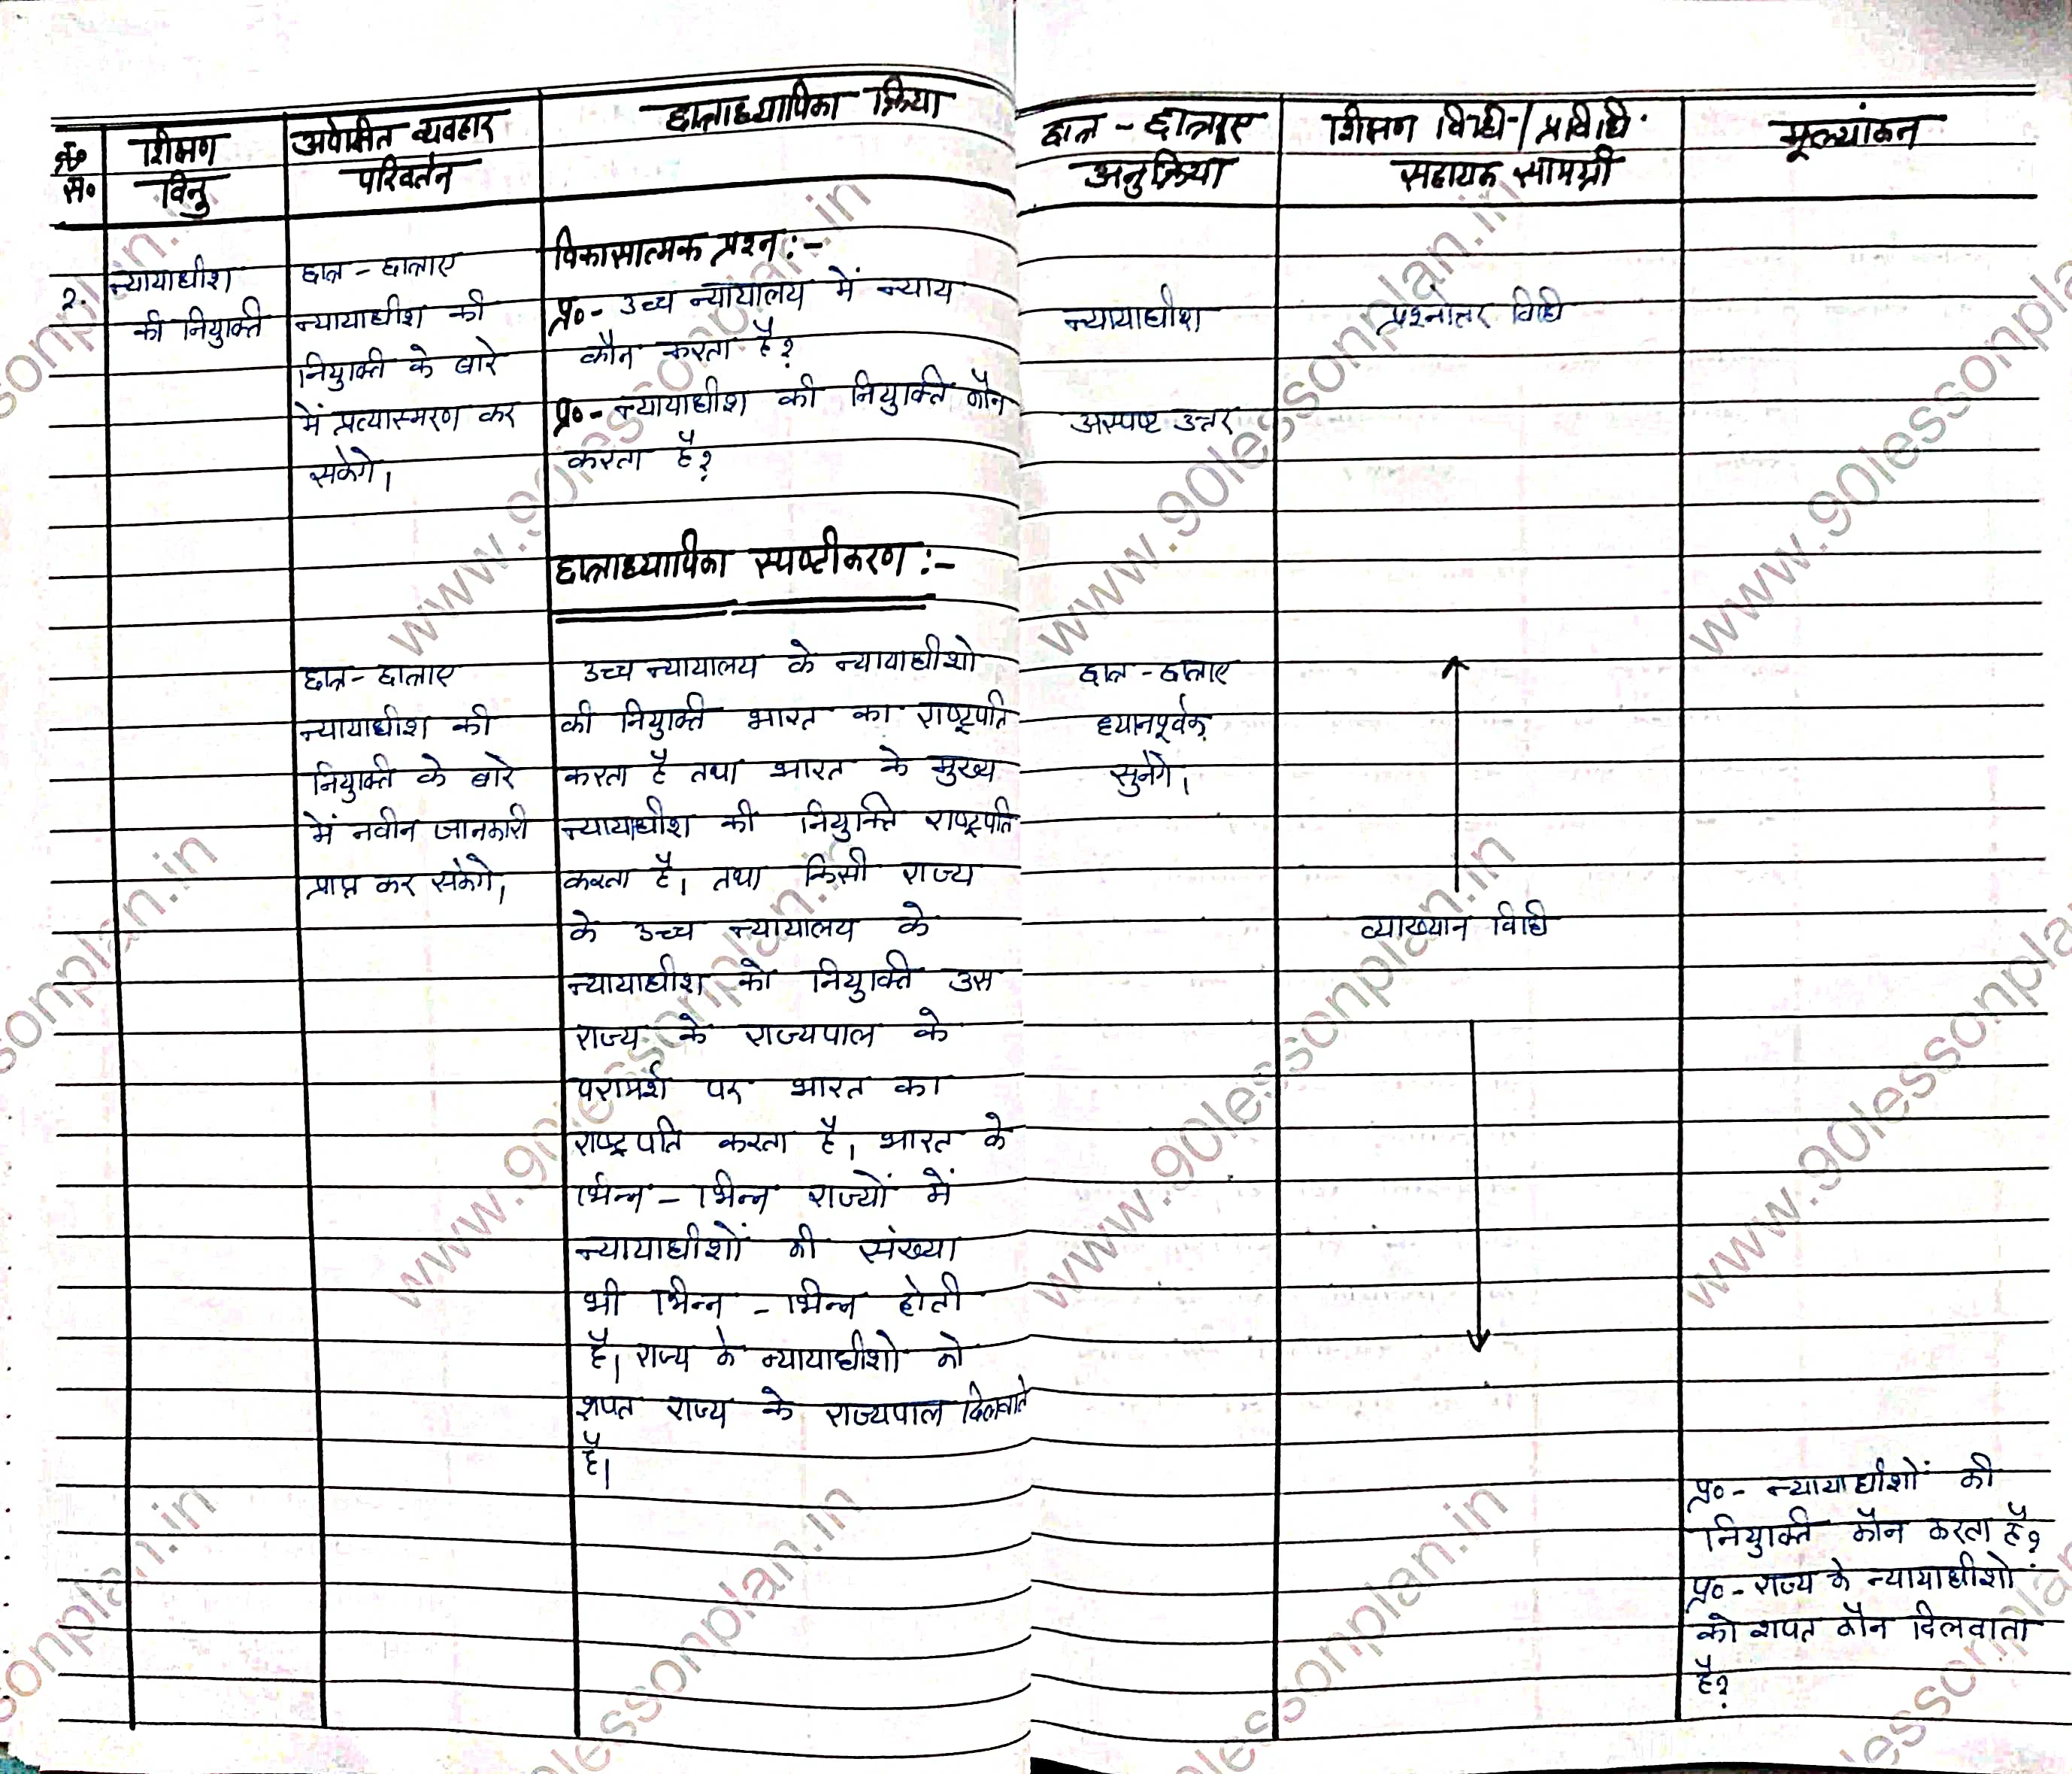 क्र०
स०
शिक्षण
विन्दु
अपेक्षित व्यवहार
परिवर्तन
छात्राध्यापिका क्रिया
छात्र - छात्राए
अनुक्रिया
शिक्षण विधि / प्रविधि
सहायक सामग्री
मूल्यांकन
2.
न्यायाधीश
की नियुक्ति
छात्र - छात्राए
न्यायाधीश की
नियुक्ति के बारे
में प्रत्यास्मरण कर
सकेंगे।
विकासात्मक प्रश्न :-
प्र०- उच्च न्यायालय में न्याय
कौन करता है?
प्र०- न्यायाधीश की नियुक्ति कौन
करता है?
न्यायाधीश
अस्पष्ट उत्तर
प्रश्नोत्तर विधि
छात्राध्यापिका स्पष्टीकरण :-
छात्र - छात्राए
न्यायाधीश की
नियुक्ति के बारे
में नवीन जानकारी
प्राप्त कर सकेंगे।
उच्च न्यायालय के न्यायाधीशो
की नियुक्ति भारत का राष्ट्रपति
करता है तथा भारत के मुख्य
न्यायाधीश की नियुक्ति राष्ट्रपति
करता है। तथा किसी राज्य
के उच्च न्यायालय के
न्यायाधीश की नियुक्ति उस
राज्य के राज्यपाल के
परामर्श पर भारत का
राष्ट्रपति करता है। भारत के
भिन्न - भिन्न राज्यों में
न्यायाधीशों की संख्या
भी भिन्न - भिन्न होती
है। राज्य के न्यायाधीशो को
शपत राज्य के राज्यपाल दिलवाते
है।
छात्र - छात्राए
ध्यानपूर्वक
सुनेंगे।
व्याख्यान विधि
प्र०- न्यायाधीशों की
नियुक्ति कौन करता है?
प्र०- राज्य के न्यायाधीशो
को शपत कौन दिलवाता
है?
www.90lessonplan.in